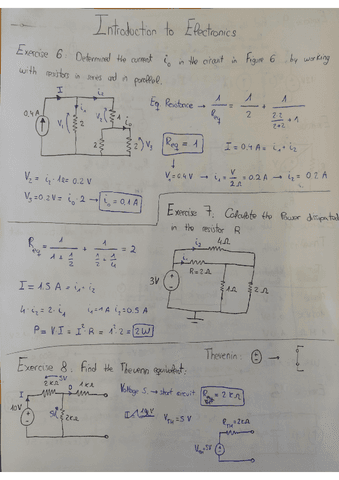 Introduction to Electronics
Exercise 6: Determine the current i₀ in the circuit in Figure 6, by working
with resistors in series and in parallel.
Eq Resistance → 1/Req = 1/2 + 1/(2·2/(2+2) + 1)
0,4A I i₁ i₂ V₁ 2 V₂ 1 i₀ 2 2 V₃
Req = 1 I = 0,4A = i₁ + i₂
V₁ = 0.4V → i₁ = V/2Ω = 0.2A → i₂ = 0.2A
V₂ = i₂·1Ω = 0.2V
V₃ = 0.2V = i₀·2 → i₀ = 0,1A
Exercise 7: Calculate the Power dissipated
in the resistor R
i₂ 4Ω
i₁ R=2Ω
3V 1Ω 2Ω
Req = 2
I = 1.5A = i₁ + i₂
4·i₂ = 2·i₁ i₁=1A i₂=0.5A
P = V·I = I²·R = 1²·2 = 2W
Exercise 8: Find the Thevenin equivalent:
Thevenin:
5V
2kΩ 1kΩ
I
10V 2kΩ
Voltage S. → short circuit
= 2kΩ
VTH = 5V
RTH = 2kΩ